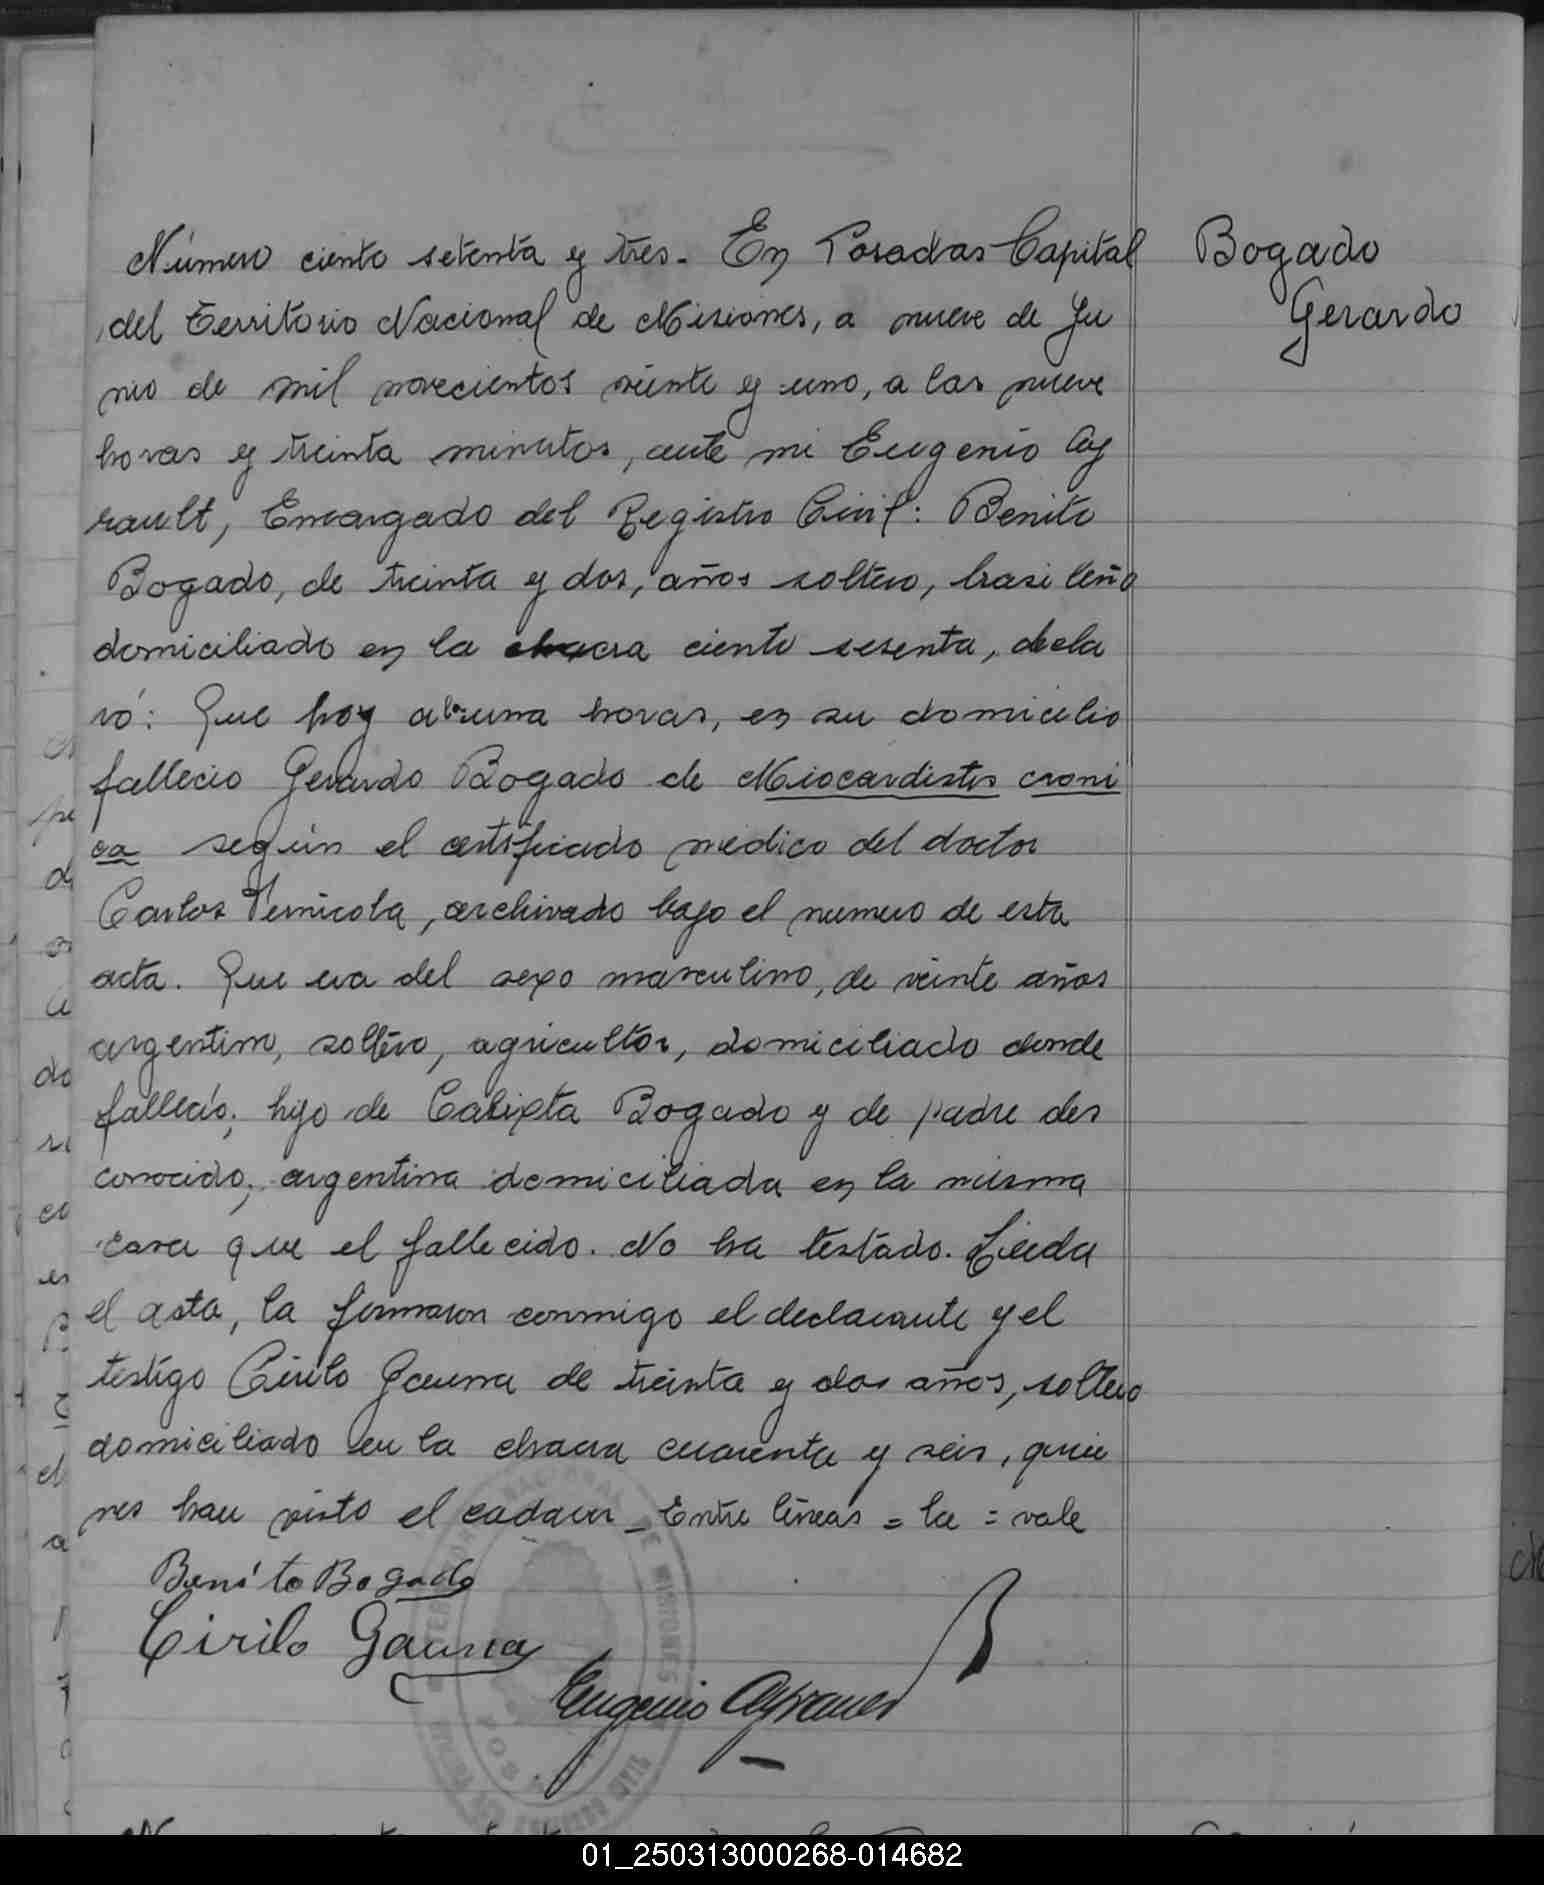 Número ciento setenta y tres. En Posadas Capital
del Territorio Nacional de Misiones, a nueve de Ju
nio de mil novecientos veinte y uno, a las nueve
horas y treinta minutos, ante mi Eugenio Ay
rault, Encargado del Registro Civil: Benito
Bogado, de treinta y dos, años soltero, brasileño
domiciliado en la chacra ciento sesenta, decla
ró: Que hoy a la una horas, en su domicilio
fallecio Gerardo Bogado de Miocardistis croni
ca según el certificado medico del doctor
Carlos Vernicola, archivado bajo el numero de esta
acta. Que era del sexo masculino, de veinte años
argentino, soltero, agricultor, domiciliado donde
falleció; hijo de Calixta Bogado y de padre des
conocido; argentina domiciliada en la misma
casa que el fallecido. No ha testado. Leida
el acta, la firmaron conmigo el declarante y el
testigo Cirilo Gauna de treinta y dos años, soltero
domiciliado en la chacra cuarenta y seis, quie
nes han visto el cadaver _ Entre lineas = la = vale
Benito Bogado
Cirilo Gauna
Eugenio Ayrault
Bogado
Gerardo
01_250313000268-014682